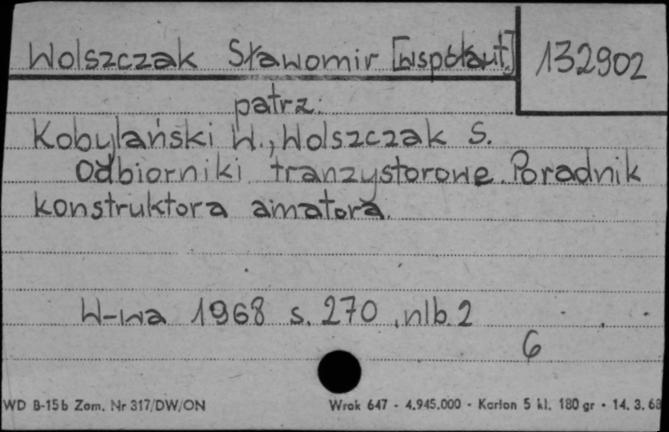 Wolszczak Sławomir [współaut.] 132902
patrz:
Kobylański W., Wolszczak S.
Odbiorniki tranzystorowe. Poradnik
konstruktora amatora.
W-wa 1968 s. 270, nlb. 2
6
WD B-15b Zam. Nr 317/DW/ON Wrok 647 - 4.945.000 - Karton 5 kl. 180 gr - 14. 3. 68